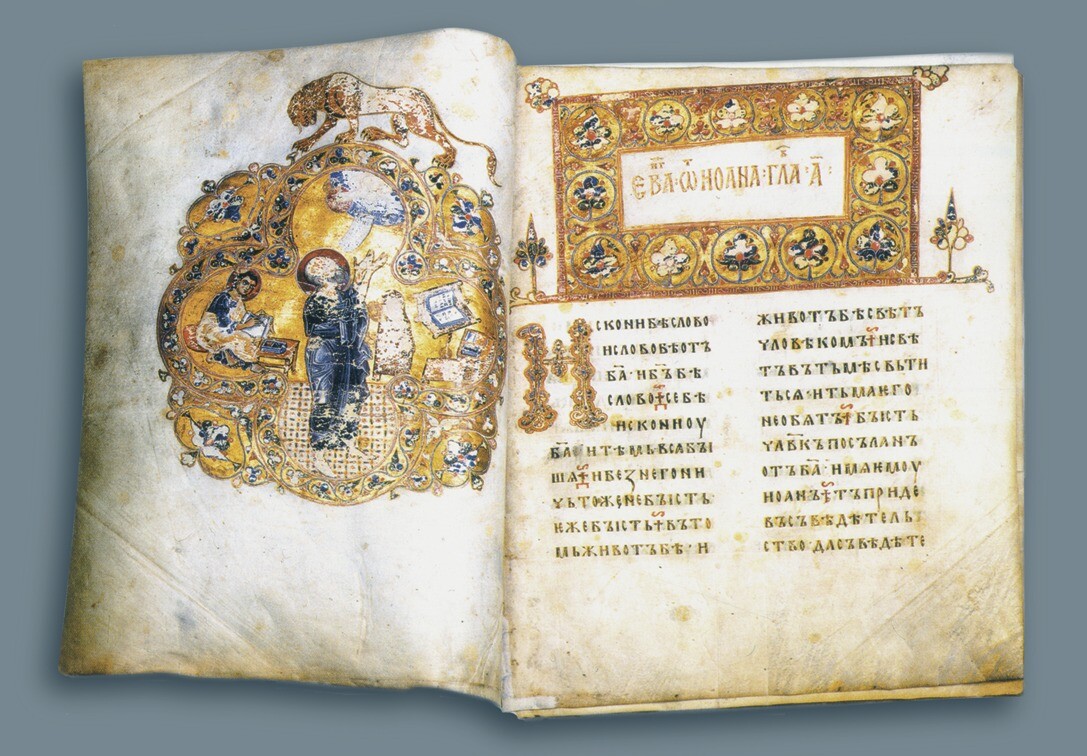 ЕВА҃·Ѿ ИОАНА·ГЛА·А҃:
Искони бѣ слово
и слово бѣ отъ
б҃а· и б҃ъ бѣ
слово· се бѣ
искони оу
б҃а· и тѣмь вьса бы
шѧ· и без него ни
чьтоже не бысть
еже бысть· въ то
мь животъ бѣ· и
животъ бѣ свѣтъ
чловѣкомъ· и свѣ
тъ въ тьмѣ свьти
ть сѧ· и тьма ѥго
не обѧтъ· бысть
чл҃вкъ посъланъ
отъ б҃а· имѧ ѥмоу
иоанъ· тъ приде
въ съвѣдѣтель
ство· да съвѣдѣте